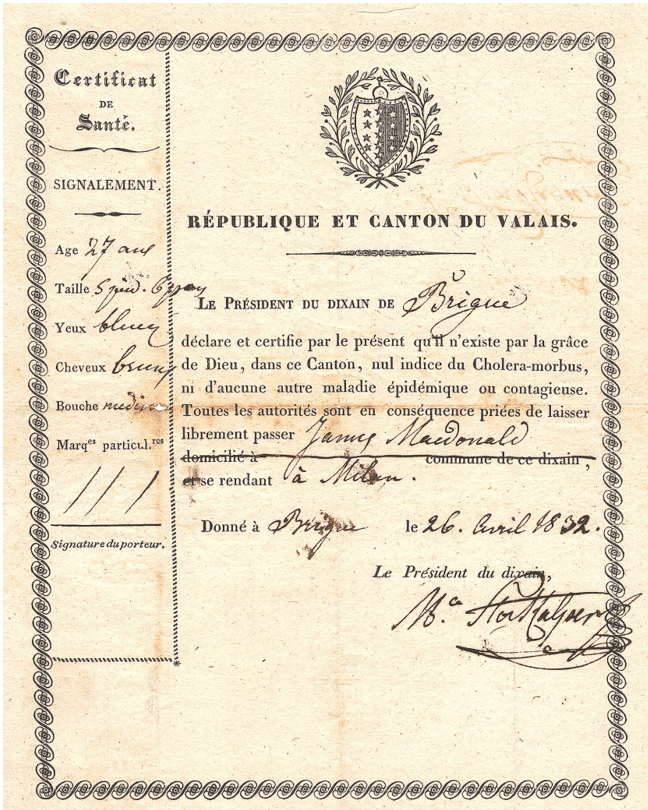 Certificat
DE
Santé.
SIGNALEMENT.
Age 27 ans
Taille 5 pied. 6
Yeux bleux
Cheveux bruns
Bouche
Marq.es particul.res
Signature du porteur.
RÉPUBLIQUE ET CANTON DU VALAIS.
LE PRÉSIDENT DU DIXAIN DE Brigue
déclare et certifie par le présent qu'il n'existe par la grâce
de Dieu, dans ce Canton, nul indice du Cholera-morbus,
ni d'aucune autre maladie épidémique ou contagieuse.
Toutes les autorités sont en conséquence priées de laisser
librement passer James Macdonald
domicilié à commune de ce dixain,
et se rendant à Milan.
Donné à Brigue le 26. Avril 1832.
Le Président du dixain,